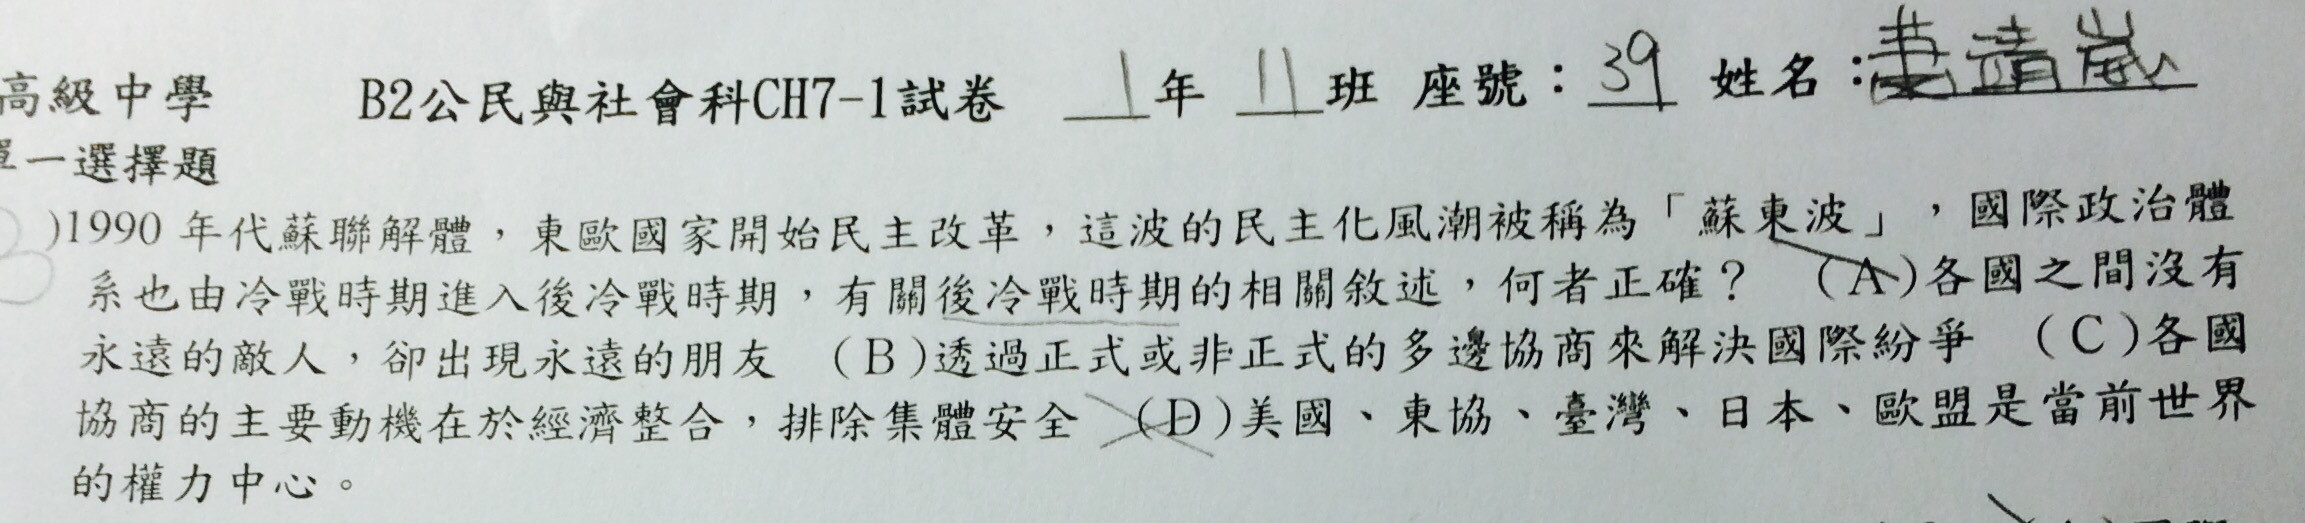 高級中學 B2公民與社會科CH7-1試卷 1年 11班 座號：39 姓名：靖崴
單一選擇題
B )1990 年代蘇聯解體，東歐國家開始民主改革，這波的民主化風潮被稱為「蘇東波」，國際政治體
系也由冷戰時期進入後冷戰時期，有關後冷戰時期的相關敘述，何者正確？ (A)各國之間沒有
永遠的敵人，卻出現永遠的朋友 (B)透過正式或非正式的多邊協商來解決國際紛爭 (C)各國
協商的主要動機在於經濟整合，排除集體安全 (D)美國、東協、臺灣、日本、歐盟是當前世界
的權力中心。